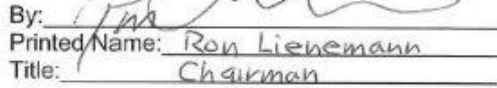 By:
Printed Name: Ron Lienemann
Title: Chairman